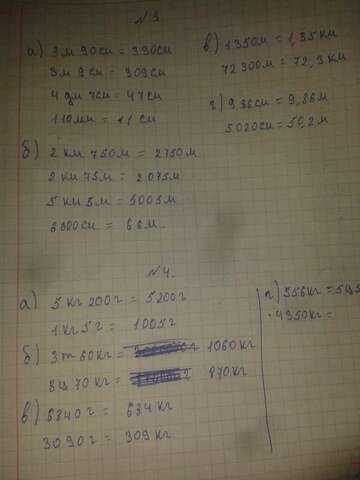 № 3.
а) 3м 90см = 390см
3м 9см = 309см
4 дм 7см = 47см
110мм = 11 см
б) 2 км 750м = 2750м
2 км 75м = 2075м
5 км 5м = 5005м
6600см = 66м.
в) 1350м = 1,35км
72300м = 72,3км
г) 986см = 9,86м
5020см = 50,2м
№ 4.
а) 5 кг 200г = 5200г
1кг 5г = 1005г
б) 3т 60кг = 1060 кг
8ц 70 кг = 870кг
в) 6340г = 634кг
3090г = 309кг
г) 556кг = 5ц 5
4950кг =